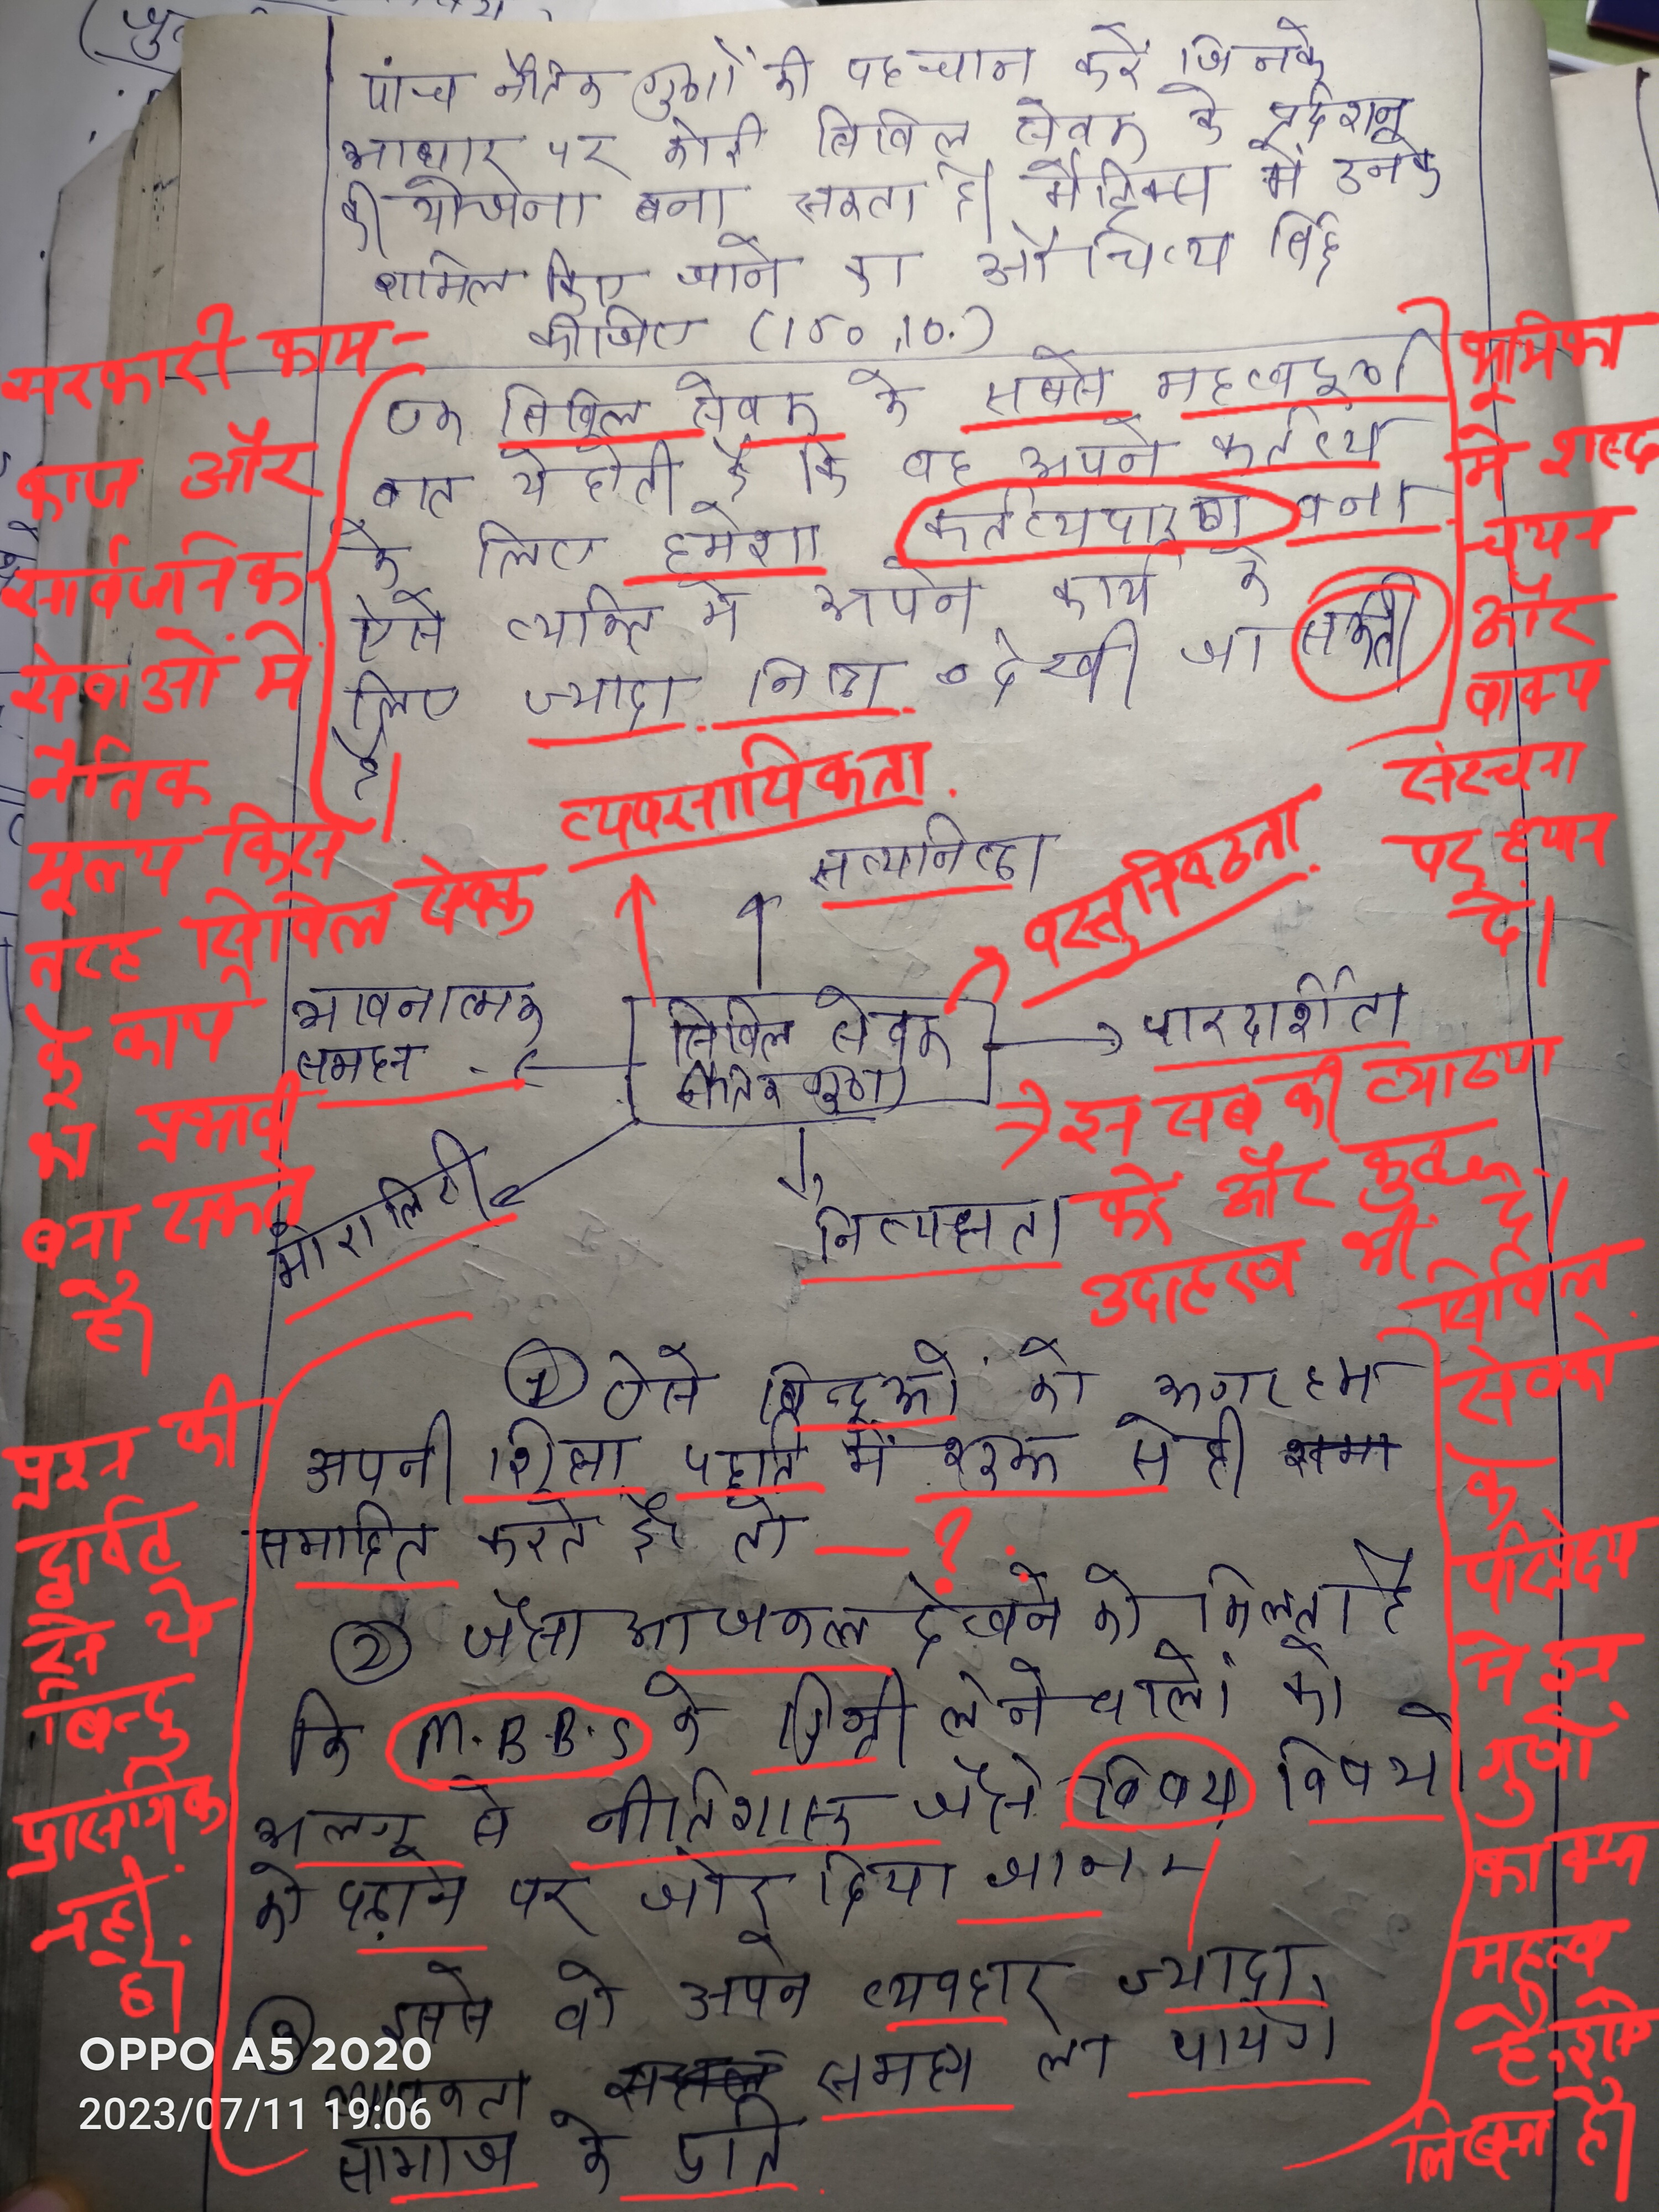 पांच नैतिक गुणों की पहचान करें जिनके
आधार पर कोई सिविल सेवक के प्रर्दशन
की योजना बना सकता है। मैट्रिक्स में उनके
शामिल किए जाने का औचित्य सिद्द
कीजिए (150,10.)
एक सिविल सेवक के सबसे महत्वपूर्ण
बात ये होती है कि वह अपने कर्तव्य
के लिए हमेशा कर्तव्यपारण बना
ऐसे व्यक्ति मे अपने कार्य के
लिए ज्यादा निष्ठा देखी जा सकती
है।
सरकारी काम-
काज और
सार्वजनिक
सेवाओं मे
नैतिक
मूल्य किस
तरह सिविल सेवक
के कार्य
को प्रभावी
बना सकते
है।
भूमिका
मे शब्द
चयन
और
वाक्य
संरचना
पर ध्यान
दे।
व्यवसायिकता.
सत्यनिष्ठा
वस्तुनिष्ठता.
भावनात्मक
समझ
सिविल सेवक
नैतिक गुण
पारदर्शिता
मोरालिटी
निष्पक्षता
इन सब की व्याख्या
करें और कुछ
उदाहरण भी दे।
① ऐसे बिन्दूओं को अगर हम
अपनी शिक्षा पद्दति में शुरू से ही
समाहित करते है तो — ?
② जैसा आजकल देखने को मिलता है
कि M.B.B.S के डिग्री लेने वालों को
अलग से नीतिशास्त्र जैसे विषय विषयों
को पढ़ाने पर जोर दिया जाना
③ इससे वो अपने व्यवहार ज्यादा
समझ ला पायेंगे
सामाज के प्रति
प्रश्न की
दृष्टि
से ये
बिन्दु
प्रासंगिक
नहीं
है।
सिविल
सेवको
के
परिप्रेक्ष्य
मे इन
गुणों
का क्या
महत्व
है, इसे
लिखना है।
OPPO A5 2020
2023/07/11 19:06